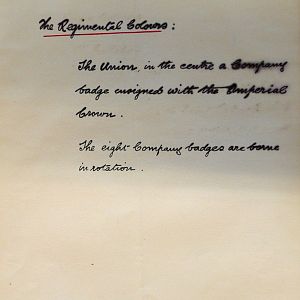 The Regimental Colours:
The Union, in the centre a Company
badge ensigned with the Imperial
Crown.
The eight Company badges are borne
in rotation.